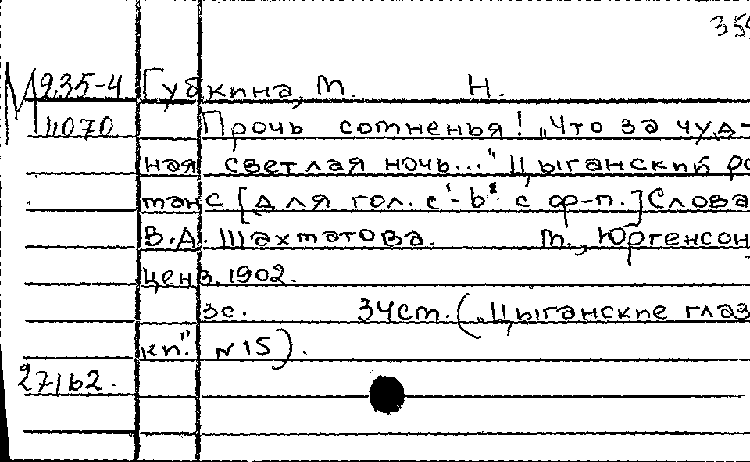 359
M 235-4 Губкина, М. Н.
11070 Прочь сомненья! „Что за чуд-
ная светлая ночь..." Цыганский ро
манс [для гол. c'-b² с ф-п.] Слова
В.А. Шахматова. М., Юргенсон,
ценз. 1902.
3с. 34см. („Цыганские глаз
ки". N 15).
27162.